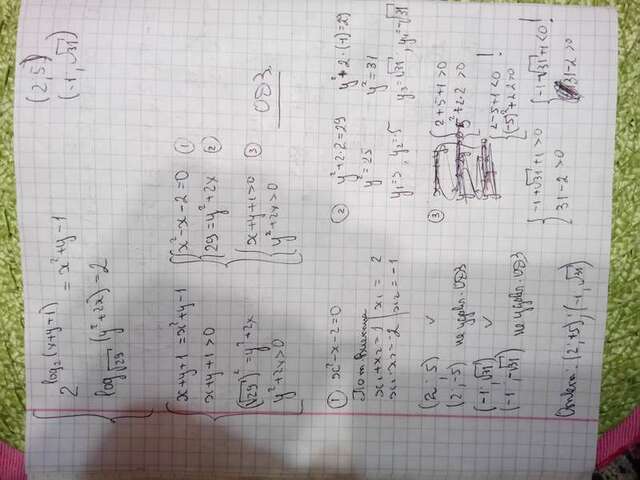 (2;5)
(-1;√31)
{ 2^log₂(x+y+1) = x²+y-1
log_√29 (y²+2x) = 2
{ x+y+1 = x²+y-1
x+y+1>0
(√29)² = y²+2x
y²+2x>0
{ x²-x-2=0 ①
29=y²+2x ②
{ x+y+1>0 ③
y²+2x>0
ОДЗ.
① x²-x-2=0
По т. Виета
x₁+x₂=1
x₁·x₂=-2
x₁=2
x₂=-1
② y²+2·2=29
y²=25
y₁=5, y₂=-5
y²+2·(-1)=29
y²=31
y₃=√31, y₄=-√31
③ { 2+5+1>0
5²+2·2>0
{ 2-5+1<0 !
(-5)²+2·2>0
{ -1+√31+1>0
31-2>0
{ -1-√31+1<0 !
31-2>0
(2;5) ✓
(2;-5) не удовл. ОДЗ
(-1;√31) ✓
(-1;-√31) не удовл. ОДЗ
Ответ: (2;+5);(-1;√31)